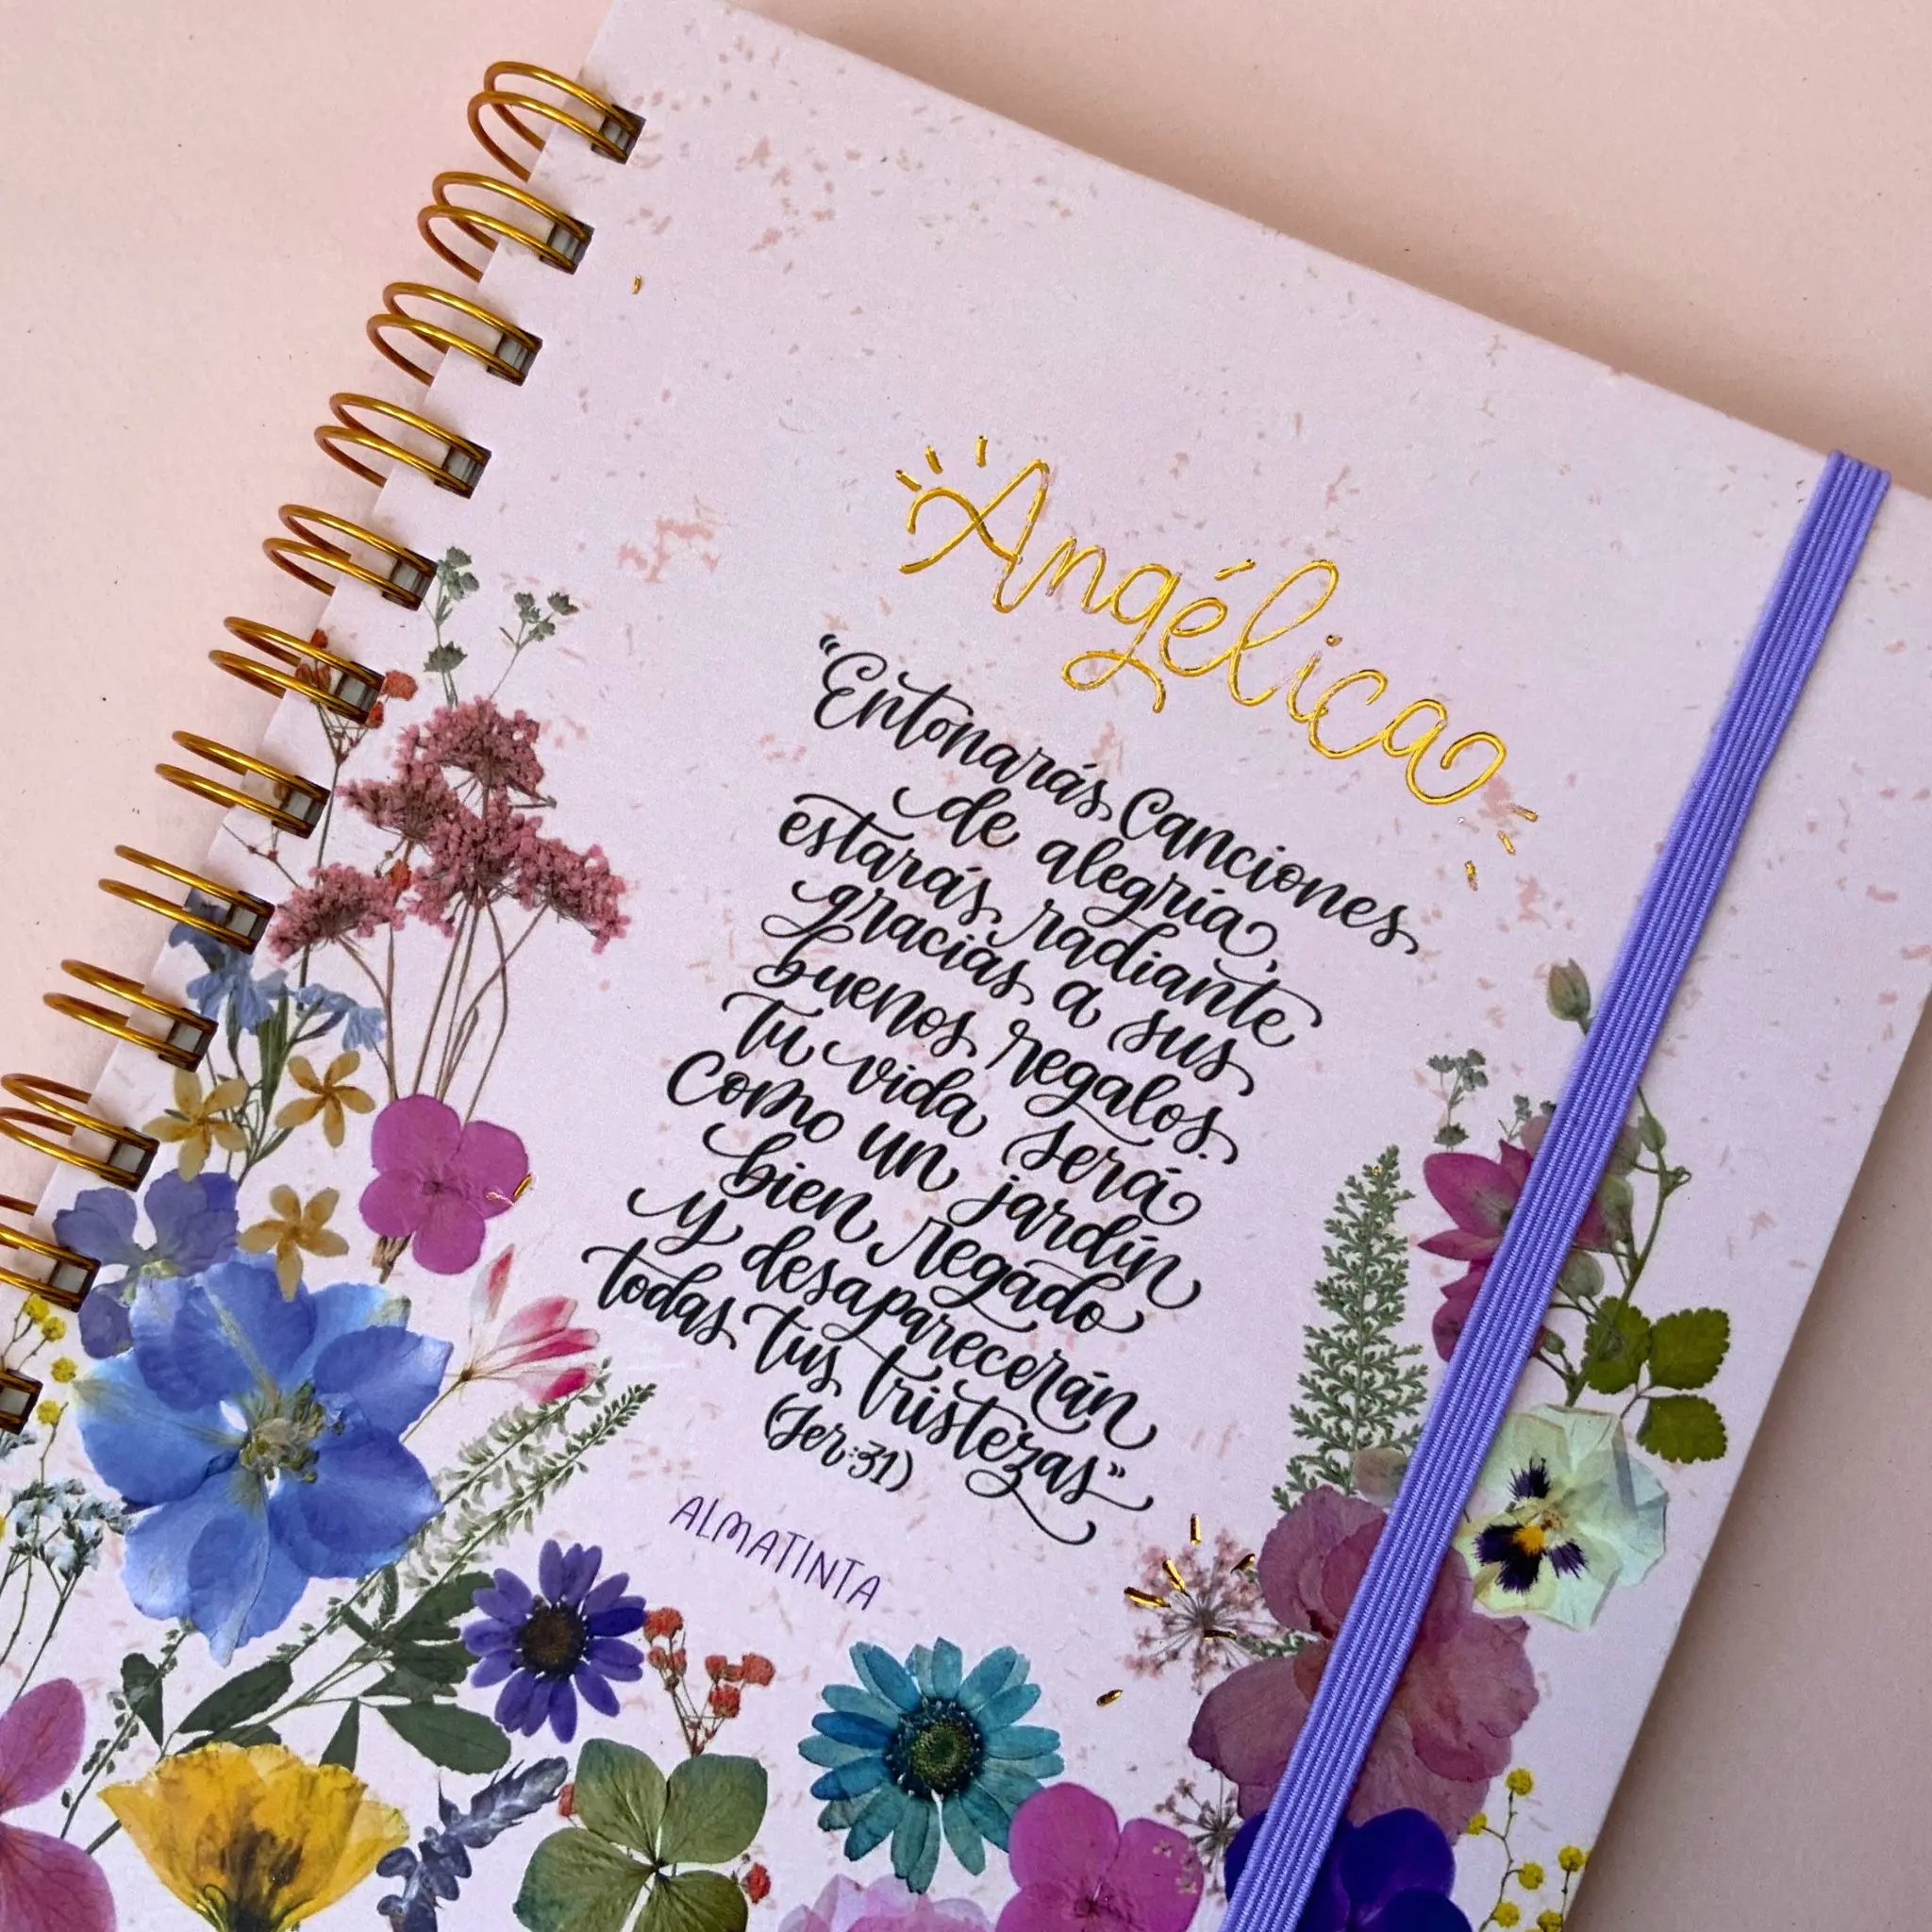 Angélica
"Entonarás Canciones
de alegría,
estarás radiante
gracias a sus
buenos regalos.
Tu vida será
Como un jardín
bien regado
y desaparecerán
todas tus tristezas"
(Jer:31)
ALMATINTA